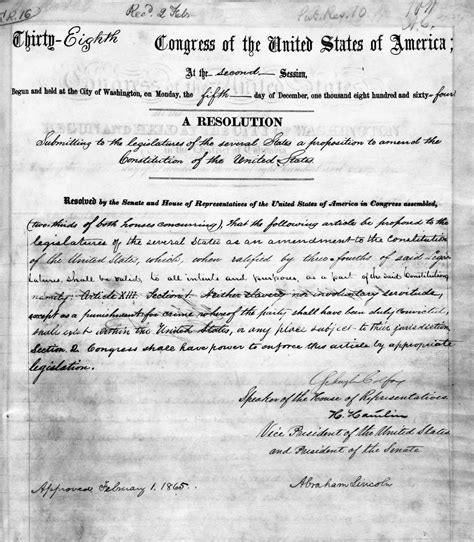 Rec'd. 2 Feb.
Pub. Res. 10
Thirty-Eighth Congress of the United States of America;
At the second Session,
Begun and held at the City of Washington, on Monday, the fifth day of December, one thousand eight hundred and sixty-four
A RESOLUTION
Submitting to the legislatures of the several States a proposition to amend the
Constitution of the United States.
Resolved by the Senate and House of Representatives of the United States of America in Congress assembled,
(two-thirds of both houses concurring), that the following article be proposed to the
legislatures of the several States as an amendment to the Constitution
of the United States, which, when ratified by three-fourths of said legis-
latures shall be valid, to all intents and purposes, as a part of the said Constitution,
namely: Article XIII. Section 1. Neither slavery nor involuntary servitude,
except as a punishment for crime whereof the party shall have been duly convicted,
shall exist within the United States, or any place subject to their jurisdiction.
Section 2. Congress shall have power to enforce this article by appropriate
legislation.
Schuyler Colfax
Speaker of the House of Representatives
H. Hamlin
Vice President of the United States
and President of the Senate
Approved February 1. 1865.
Abraham Lincoln